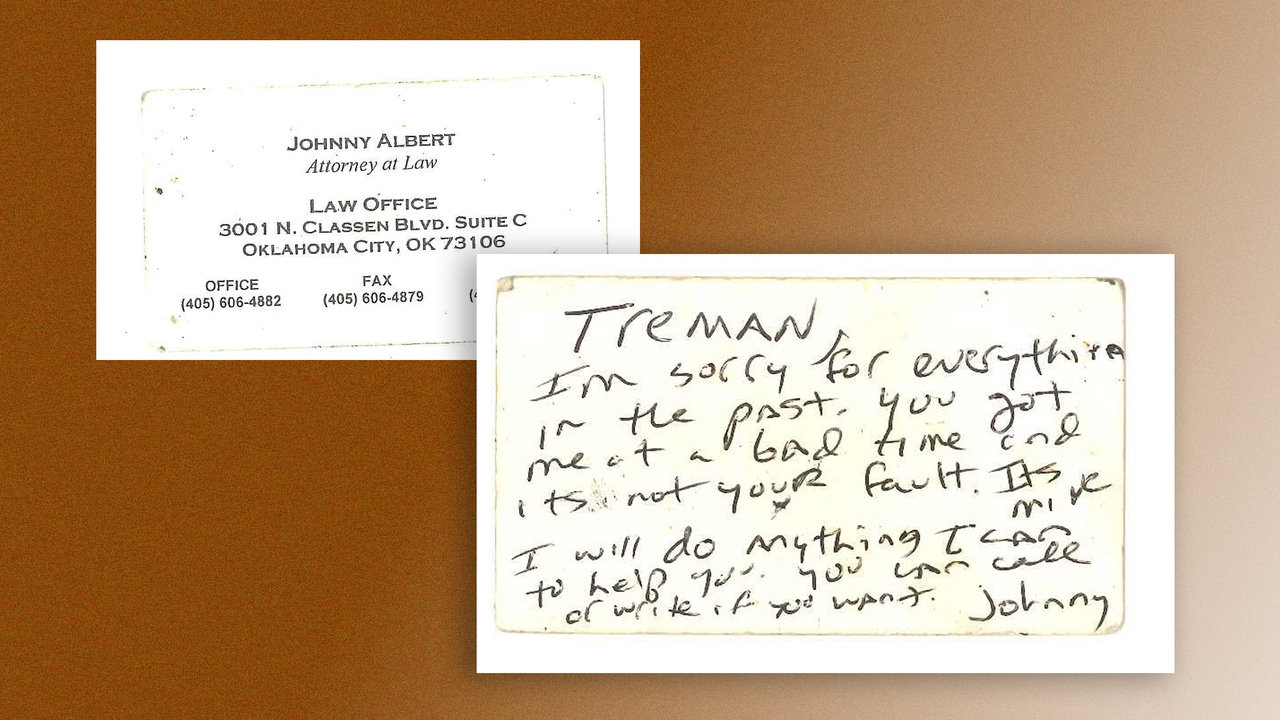 JOHNNY ALBERT
Attorney at Law
LAW OFFICE
3001 N. CLASSEN BLVD. SUITE C
OKLAHOMA CITY, OK 73106
OFFICE FAX
(405) 606-4882 (405) 606-4879 (4
TREMAN,
I'm sorry for everything
in the past. You got
me at a bad time and
its not your fault. Its
mine
I will do anything I can
to help you. You can call
or write if you want. Johnny